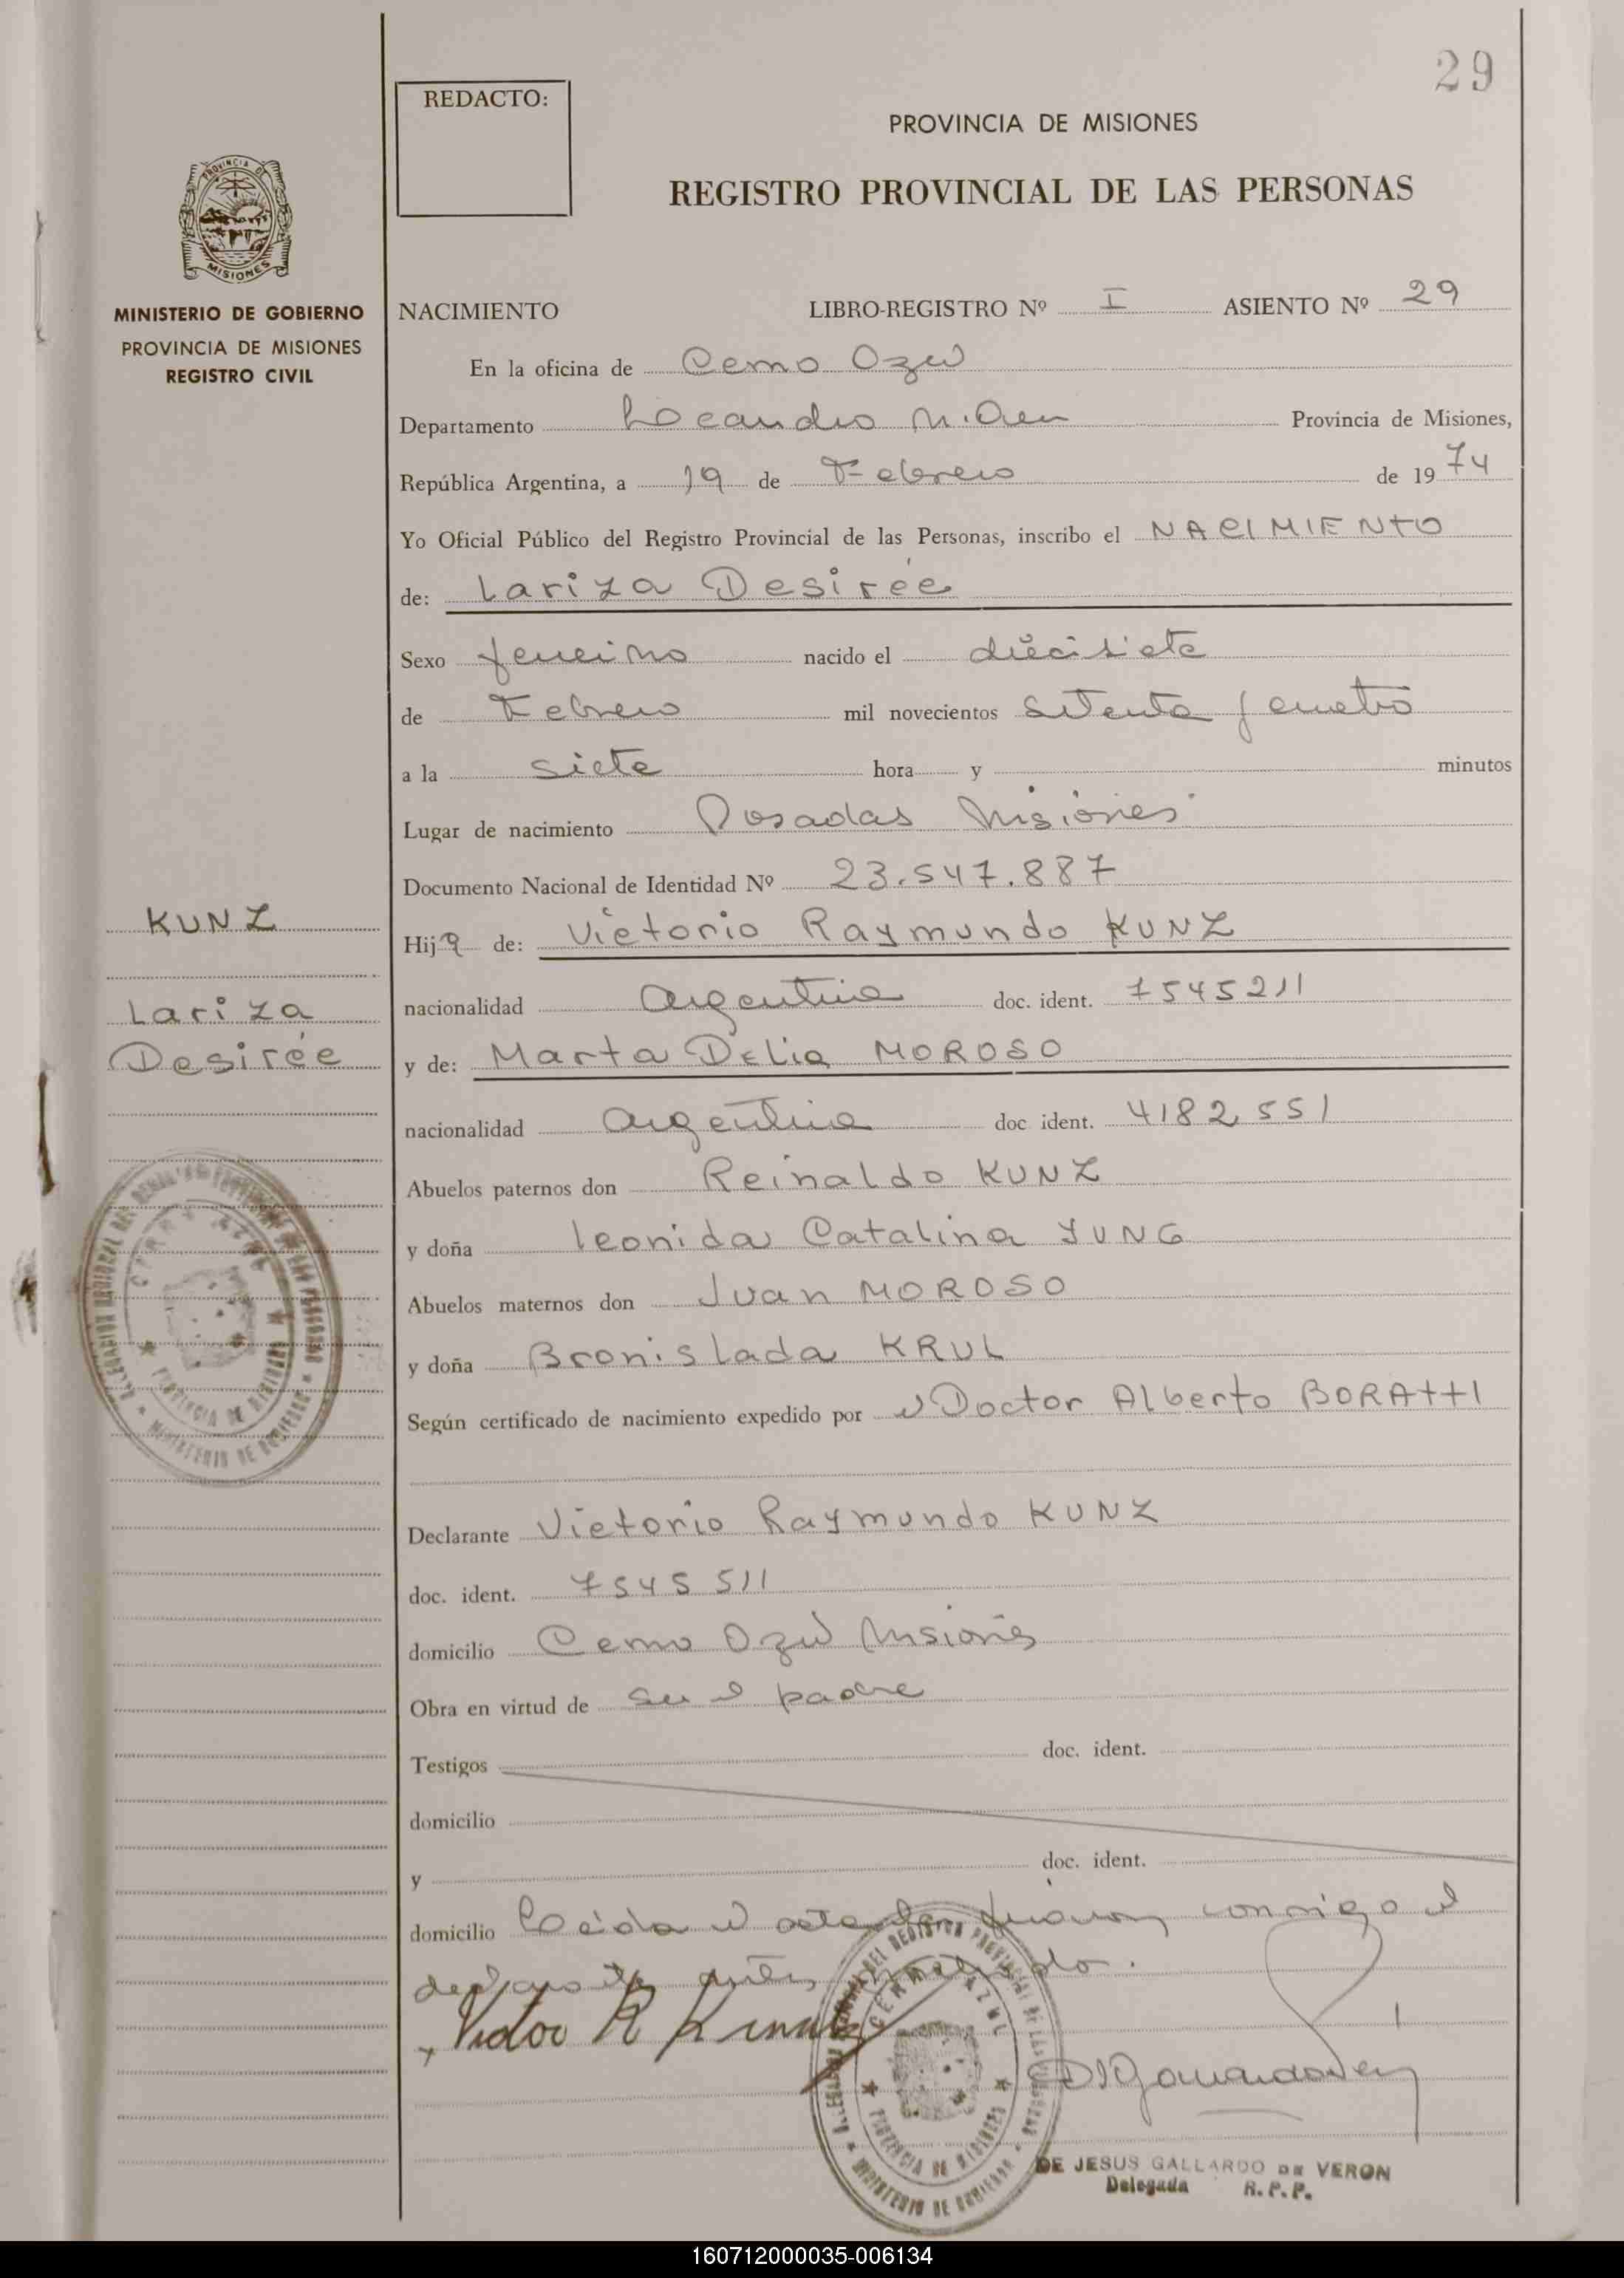 29
REDACTO:
PROVINCIA DE MISIONES
REGISTRO PROVINCIAL DE LAS PERSONAS
PROVINCIA DE
MISIONES
MINISTERIO DE GOBIERNO
PROVINCIA DE MISIONES
REGISTRO CIVIL
NACIMIENTO LIBRO-REGISTRO Nº I ASIENTO Nº 29
En la oficina de Cerro Azul
Departamento Leandro N. Alem Provincia de Misiones,
República Argentina, a 19 de Febrero de 1974
Yo Oficial Público del Registro Provincial de las Personas, inscribo el NACIMIENTO
de: Lariza Desirée
Sexo femenino nacido el diecisiete
de Febrero mil novecientos setenta y cuatro
a la siete hora y minutos
Lugar de nacimiento Posadas Misiones
Documento Nacional de Identidad Nº 23.547.887
KUNZ
Lariza
Desirée
Hija de: Victorio Raymundo KUNZ
nacionalidad argentina doc. ident. 7545211
y de: Marta Delia MOROSO
nacionalidad argentina doc ident. 4182551
Abuelos paternos don Reinaldo KUNZ
y doña Leonida Catalina JUNG
Abuelos maternos don Juan MOROSO
y doña Bronislada KRUL
Según certificado de nacimiento expedido por el Doctor Alberto BORATTI
Declarante Victorio Raymundo KUNZ
doc. ident. 7545511
domicilio Cerro Azul Misiones
Obra en virtud de ser el padre
Testigos doc. ident.
domicilio
y doc. ident.
domicilio Leida el acta la firman conmigo el
declarante
Victor R Kunz
CERRO AZUL
PROVINCIA DE MISIONES
MINISTERIO DE GOBIERNO
DE JESUS GALLARDO DE VERON
Delegada R.P.P.
160712000035-006134